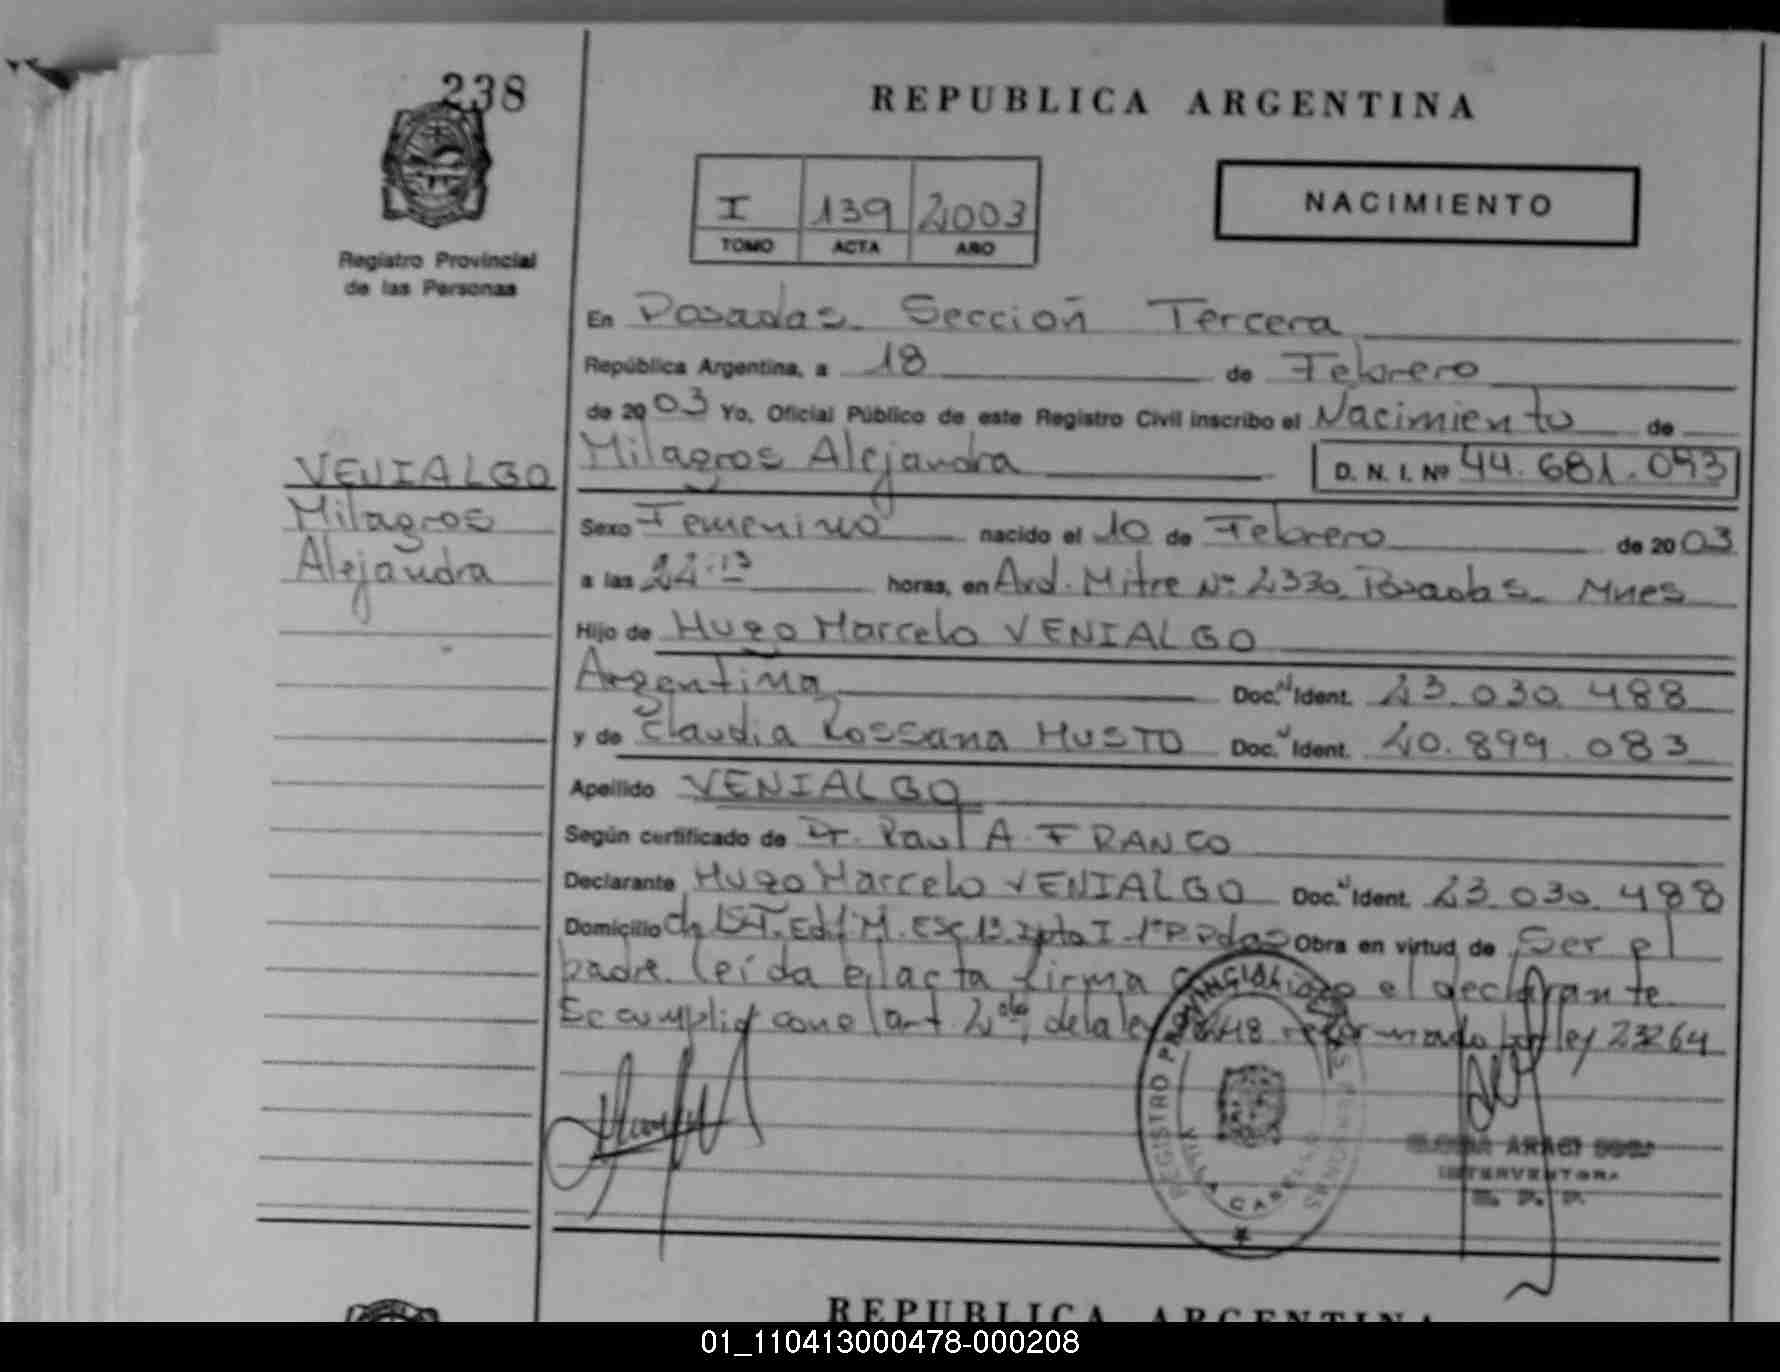 238
REPUBLICA ARGENTINA
I 139 2003
TOMO ACTA AÑO
NACIMIENTO
Registro Provincial
de las Personas
En Posadas Sección Tercera
República Argentina, a 18 de Febrero
de 2003 Yo, Oficial Público de este Registro Civil inscribo el Nacimiento de
Milagros Alejandra D. N. I. Nº 44.681.093
VENIALGO
Milagros
Alejandra
Sexo Femenino nacido el 10 de Febrero de 2003
a las 22:13 horas, en Avd. Mitre Nº 2330 Posadas Mnes
Hijo de Hugo Marcelo VENIALGO
Argentina Doc. Ident. 23.030.488
y de Claudia Rossana MUSTO Doc. Ident. 20.899.083
Apellido VENIALGO
Según certificado de Dr. Raul A. FRANCO
Declarante Hugo Marcelo VENIALGO Doc. Ident. 23.030.488
Domicilio Edif M. Esc 1ª Dpto I 1º P. Pdas Obra en virtud de Ser el
padre. Leída el acta firma el declarante
Se cumplió con el art 2do de la ley reformado por ley 23264
REGISTRO PROVINCIAL DE LAS PERSONAS
VILLA CABELLO
ARACI SOSA
INTERVENTORA
R. P. P.
REPUBLICA ARGENTINA
01_110413000478-000208